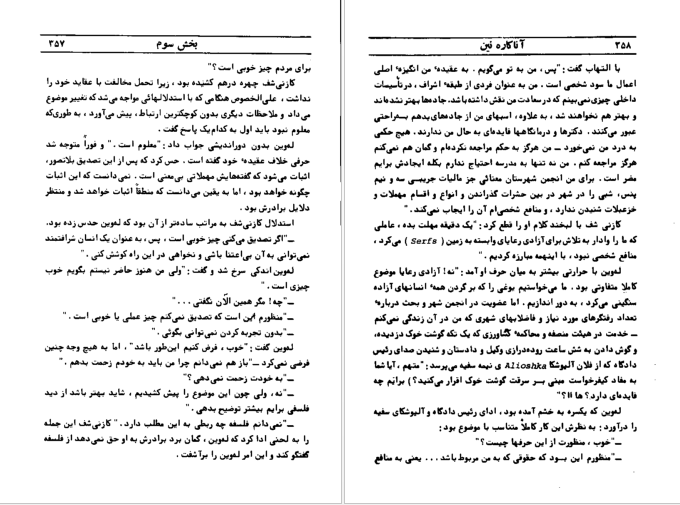 بخش سوم ۳۵۷
برای مردم چیز خوبی است؟"
کازنی‌شف چهره درهم کشیده بود، زیرا تحمل مخالفت با عقاید خود را
نداشت، علی‌الخصوص هنگامی که با استدلالهائی مواجه می‌شد که تغییر موضوع
می‌داد و ملاحظات دیگری بدون کوچکترین ارتباط، پیش می‌آورد، به طوری‌که
معلوم نبود باید اول به کدام‌یک پاسخ گفت.
له‌وین بدون دوراندیشی جواب داد: "معلوم است." و فوراً متوجه شد
حرفی خلاف عقیدهٔ خود گفته است. حس کرد که پس از این تصدیق بلاتصور،
اثبات می‌شود که گفته‌هایش مهملاتی بی‌معنی است. نمی‌دانست که این اثبات
چگونه خواهد بود، اما به یقین می‌دانست که منطقاً اثبات خواهد شد و منتظر
دلایل برادرش بود.
استدلال کازنی‌شف به مراتب ساده‌تر از آن بود که له‌وین حدس زده بود.
ــ"اگر تصدیق می‌کنی چیز خوبی است، پس، به عنوان یک انسان شرافتمند
نمی‌توانی به آن بی‌اعتنا باشی و نخواهی در این راه کوشش کنی."
له‌وین اندکی سرخ شد و گفت: "ولی من هنوز حاضر نیستم بگویم خوب
چیزی است."
ــ"چه! مگر همین الان نگفتی..."
ــ"منظورم این است که تصدیق نمی‌کنم چیز عملی یا خوبی است."
ــ"بدون تجربه کردن نمی‌توانی بگوئی."
له‌وین گفت: "خوب، فرض کنیم این‌طور باشد"، اما به هیچ وجه چنین
فرضی نمی‌کرد ــ"باز هم نمی‌دانم چرا من باید به خودم زحمت بدهم."
ــ"به خودت زحمت نمی‌دهی؟"
ــ"نه، ولی چون این موضوع را پیش کشیدیم، شاید بهتر باشد از دید
فلسفی برایم بیشتر توضیح بدهی."
ــ"نمی‌دانم فلسفه چه ربطی به این مطلب دارد." کازنی‌شف این جمله
را به لحنی ادا کرد که له‌وین، گمان برد برادرش به او حق نمی‌دهد از فلسفه
گفتگو کند و این امر له‌وین را برآشفت.
۳۵۸ آناکاره نین
با التهاب گفت: "پس، من به تو می‌گویم. به عقیدهٔ من انگیزهٔ اصلی
اعمال ما سود شخصی است. من به عنوان فردی از طبقهٔ اشراف، در تأسیسات
داخلی چیزی نمی‌بینم که در سعادت من نقش داشته باشد. جاده‌ها بهتر نشده‌اند
و بهتر هم نخواهند شد، به علاوه، اسبهای من از جاده‌های بد هم به‌راحتی
عبور می‌کنند. دکترها و درمانگاهها فایده‌ای به حال من ندارند. هیچ حکمی
به درد من نمی‌خورد ــ من هرگز به حکم مراجعه نکرده‌ام و گمان هم نمی‌کنم
هرگز مراجعه کنم. من نه تنها به مدرسه احتیاج ندارم بلکه ایجادش برایم
مضر است. برای من انجمن شهرستان معنائی جز مالیات جریبی سه و نیم
پنس، شبی را در شهر در بین حشرات گذراندن و انواع و اقسام مهملات و
خزعبلات شنیدن ندارد، و منافع شخصی‌ام آن را ایجاب نمی‌کند."
کازنی شف با لبخند کلام او را قطع کرد: "یک دقیقه مهلت بده، عاملی
که ما را وادار به تلاش برای آزادی رعایای وابسته به زمین (Serfs) می‌کرد،
منافع شخصی نبود، با اینهمه مبارزه کردیم."
له‌وین با حرارتی بیشتر به میان حرف او آمد: "نه! آزادی رعایا موضوع
کاملا متفاوتی بود. ما می‌خواستیم یوغی را که بر گردن همهٔ انسانهای آزاده
سنگینی می‌کرد، به دور اندازیم. اما عضویت در انجمن شهر و بحث دربارهٔ
تعداد رفتگرهای مورد نیاز و فاضلابهای شهری که من در آن زندگی نمی‌کنم
ــ خدمت در هیئت منصفه و محاکمهٔ کشاورزی که یک تکه گوشت خوک دزدیده،
و گوش دادن به شش ساعت روده‌درازی وکیل و دادستان و شنیدن صدای رئیس
دادگاه که از فلان آلیوشکا Alioshka ی نیمه سفیه می‌پرسد: "متهم، آیا شما
به مفاد کیفرخواست مبنی بر سرقت گوشت خوک اقرار می‌کنید؟) برایم چه
فایده‌ای دارد؟ ها !!؟"
له‌وین که یکسره به خشم آمده بود، ادای رئیس دادگاه و آلیوشکای سفیه
را درآورد: به نظرش این کار کاملاً متناسب با موضوع بود:
ــ"خوب، منظورت از این حرفها چیست؟"
ــ"منظورم این بود که حقوقی که به من مربوط باشد... یعنی به منافع